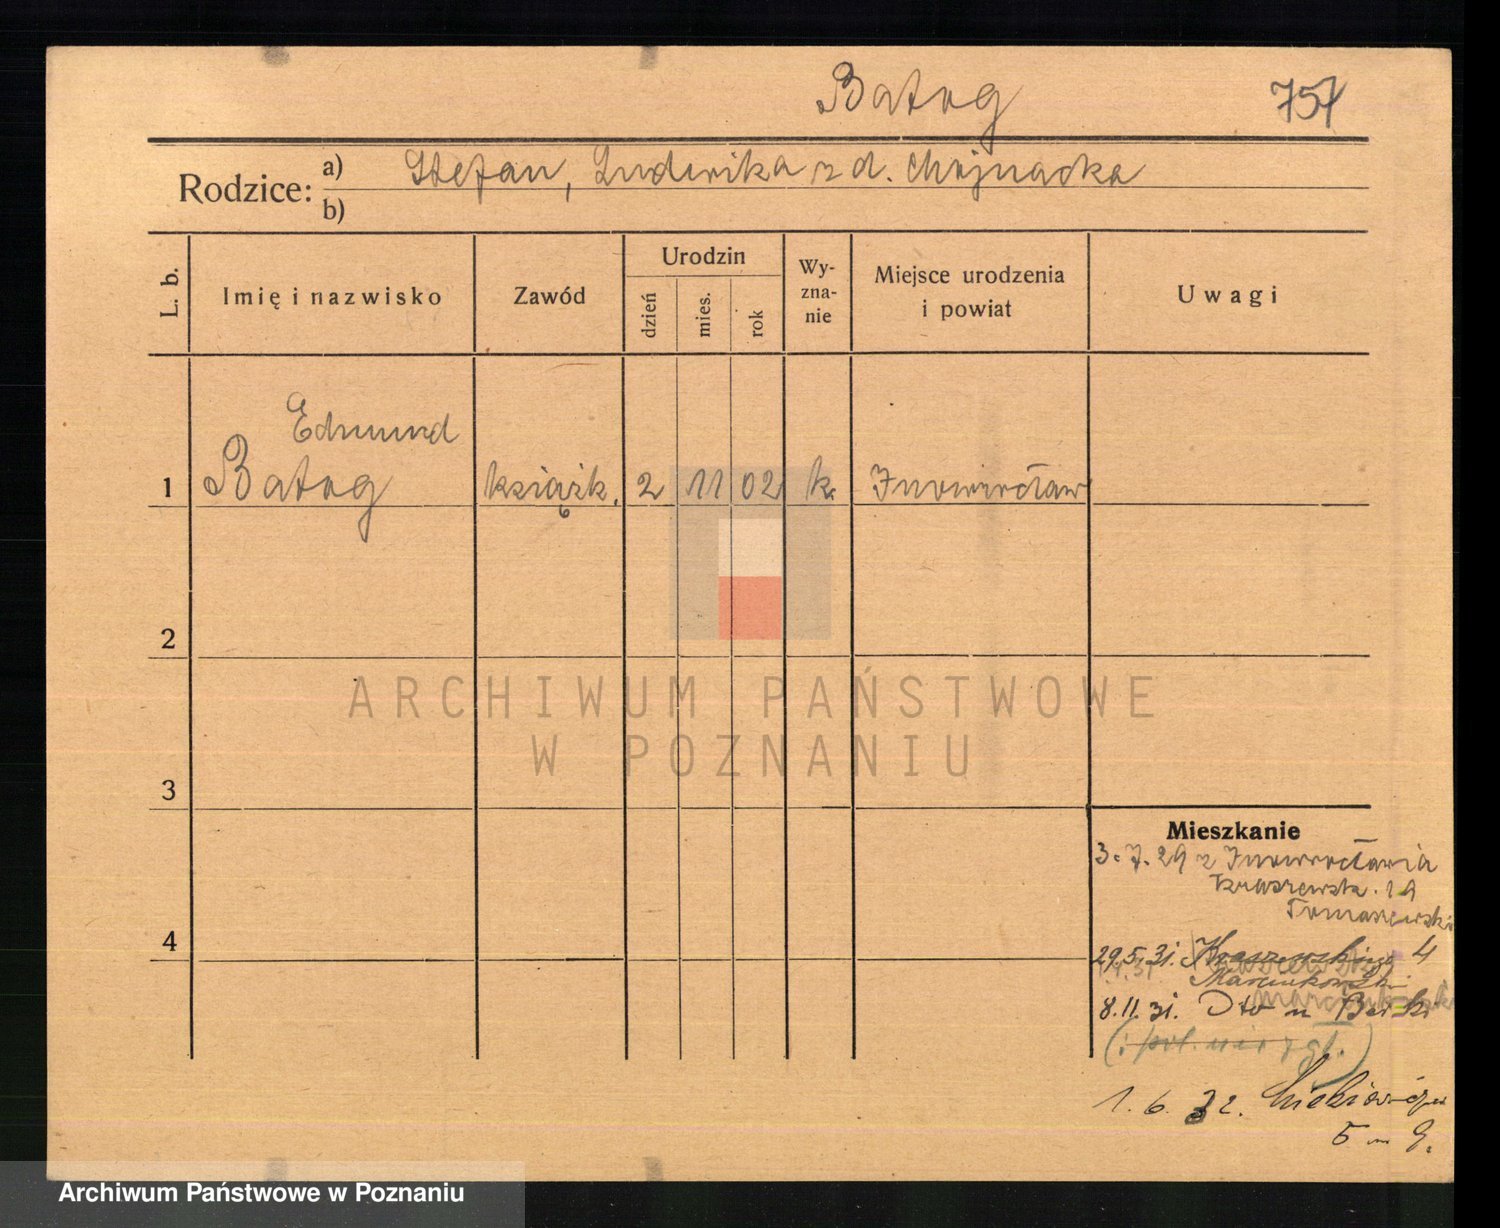 Batog 757
Rodzice: a) Stefan, Ludwika z d. Chojnacka
b)
L. b. Imię i nazwisko Zawód Urodzin dzień mies. rok Wy-zna-nie Miejsce urodzenia i powiat Uwagi
Edmund
1 Batog książk. 2 11 02 k. Inowrocław
2
ARCHIWUM PAŃSTWOWE
W POZNANIU
3
Mieszkanie
3. 7. 29 z Inowrocławia
Kraszewsk. 19
Tomaszewski
4
29.5.31. Kraszewskiego 4
Marcinkowski
8.11.31. Dto u
(: pol. nie zgł.)
1. 6. 32.
5 m 9.
Archiwum Państwowe w Poznaniu